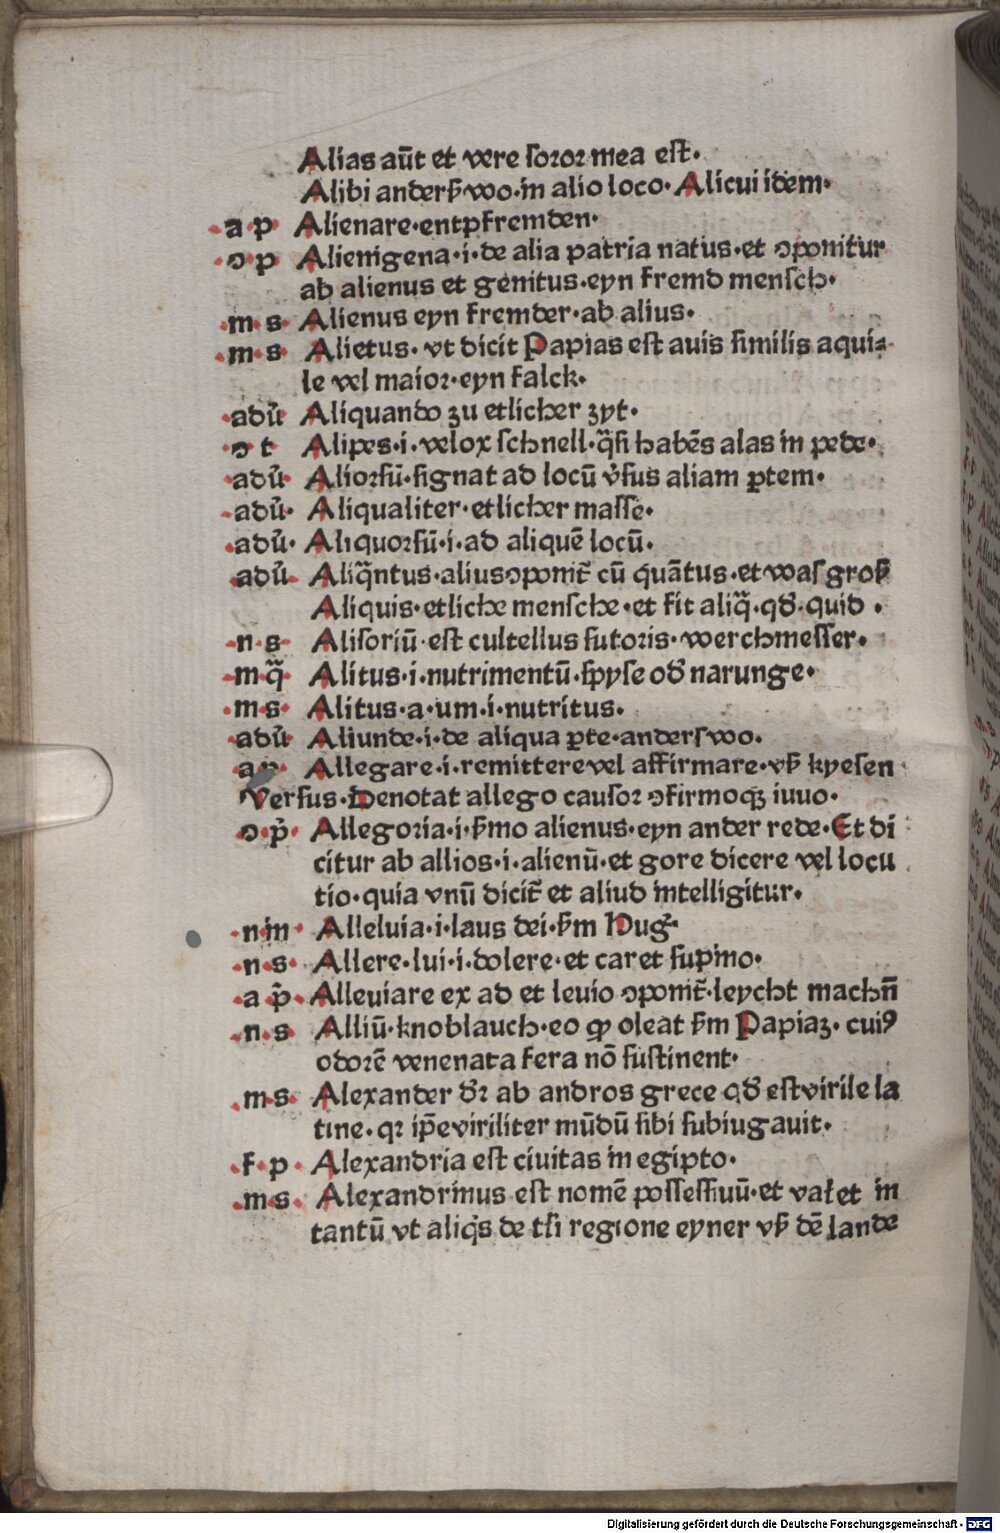 Alias aūt et vere ſoꝛoꝛ mea eſt·
Alibi anderß wo·in alio loco· Alicui idem·
·a·p· Alienare·entpfremden·
·ɔ·p· Alienigena·i·de alia patria natus·et ɔponitur
ab alienus et genitus·eyn fremd menſch·
·m·s· Alienus eyn fremder·ab alius·
·m·s· Alietus· vt dicit Papias eſt auis ſimilis aqui⸗
le vel maioꝛ·eyn falck·
·adū· Aliquando zu etlicher zyt·
·ɔ·t· Alipes·i·velox ſchnell·q̄ſi habēs alas in pede·
·adū· Alioꝛſū·ſignat ad locū v̓ſus aliam ꝑtem·
·adū· Aliqualiter·etlicher maſſe·
·adū· Aliquoꝛſū·i·ad aliquē locū·
·adū· Aliq̄ntus·alius ɔponit̄ cū quātus·et was groß
Aliquis·etliche menſche·et fit aliq̄·qď·quid·
·n·s· Aliſoriū·eſt cultellus ſutoris·werchmeſſer·
·m·q̄· Alitus·i·nutrimentū·ſpyſe oď narunge·
·m·s· Alitus·a·um·i·nutritus·
·adū· Aliunde·i·de aliqua ꝑte·anderſwo·
·a·p· Allegare·i·remittere vel affirmare·vß kyeſen
Verſus·Denotat allego cauſoꝛ ɔfirmoqꝫ iuuo·
·ɔ·p̄· Allegoꝛia·i·ẜmo alienus·eyn ander rede·Et di
citur ab allios·i·alienū·et gore dicere vel locu
tio·quia vnū dicit̄ et aliud intelligitur·
·n·in· Alleluia·i·laus dei·ẜm Hug̓·
·n·s· Allere·lui·i·dolere·et caret ſupino·
·a·p̄· Alleuiare ex ad et leuio ɔponit̄·leycht machn̄
·n·s· Alliū·knoblauch·eo ꝙ oleat ẜm Papiaꝫ·cuiꝰ
odoꝛē venenata fera nō ſuſtinent·
·m·s· Alexander ďꝛ ab andros grece qď eſt virile la
tine·qꝛ ip̄e viriliter mūdū ſibi ſubiugauit·
·f·p· Alexandria eſt ciuitas in egipto·
·m·s· Alexandrinus eſt nomē poſſeſſiuū·et valet in
tantū vt aliq̓s de tłi regione eyner vß dē lande
Digitalisierung gefördert durch die Deutsche Forschungsgemeinschaft - DFG